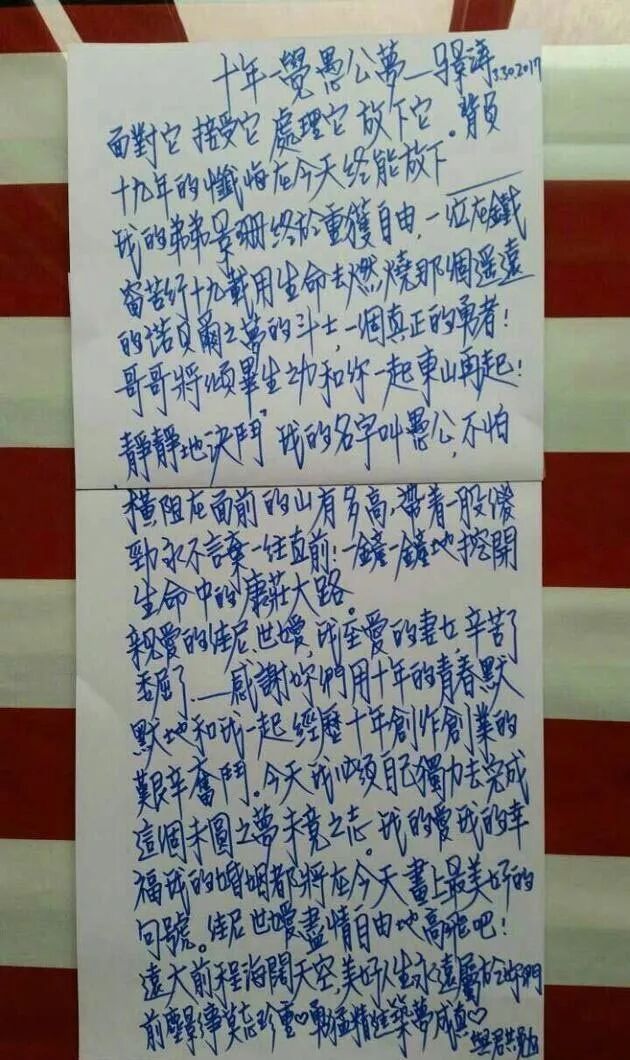 十年一覺愚公夢 — 馬景濤 3.30.2017
面對它 接受它 處理它 放下它。背負
十九年的懺悔在今天終能放下
我的弟弟景珊終於重獲自由,一位在鐵
窗苦行十九載用生命去燃燒那個遥遠
的诺貝爾之夢的斗士,一個真正的勇者!
哥哥將傾畢生之功和你一起東山再起!
靜靜地决鬥,我的名字叫愚公,不怕
橫阻在面前的山有多高,帶着一股傻
勁永不言棄一往直前!一鏟一鏟地挖開
生命中的康莊大路。
親愛的佳尼,世嫒,我至愛的妻女,辛苦了
委屈了——感謝妳們用十年的青春默
默地和我一起經歷十年創作創業的
艱辛奮鬥。今天我必須自己獨力去完成
這個未圓之夢未竟之志。我的愛我的幸
福我的婚姻都將在今天畫上最美好的
句號。佳尼世嫒盡情自由地高飛吧!
遠大前程海闊天空,美好人生永遠屬於妳們
前塵緣淨莫忘珍重♡勇猛精進築夢成真♡
與君共勉